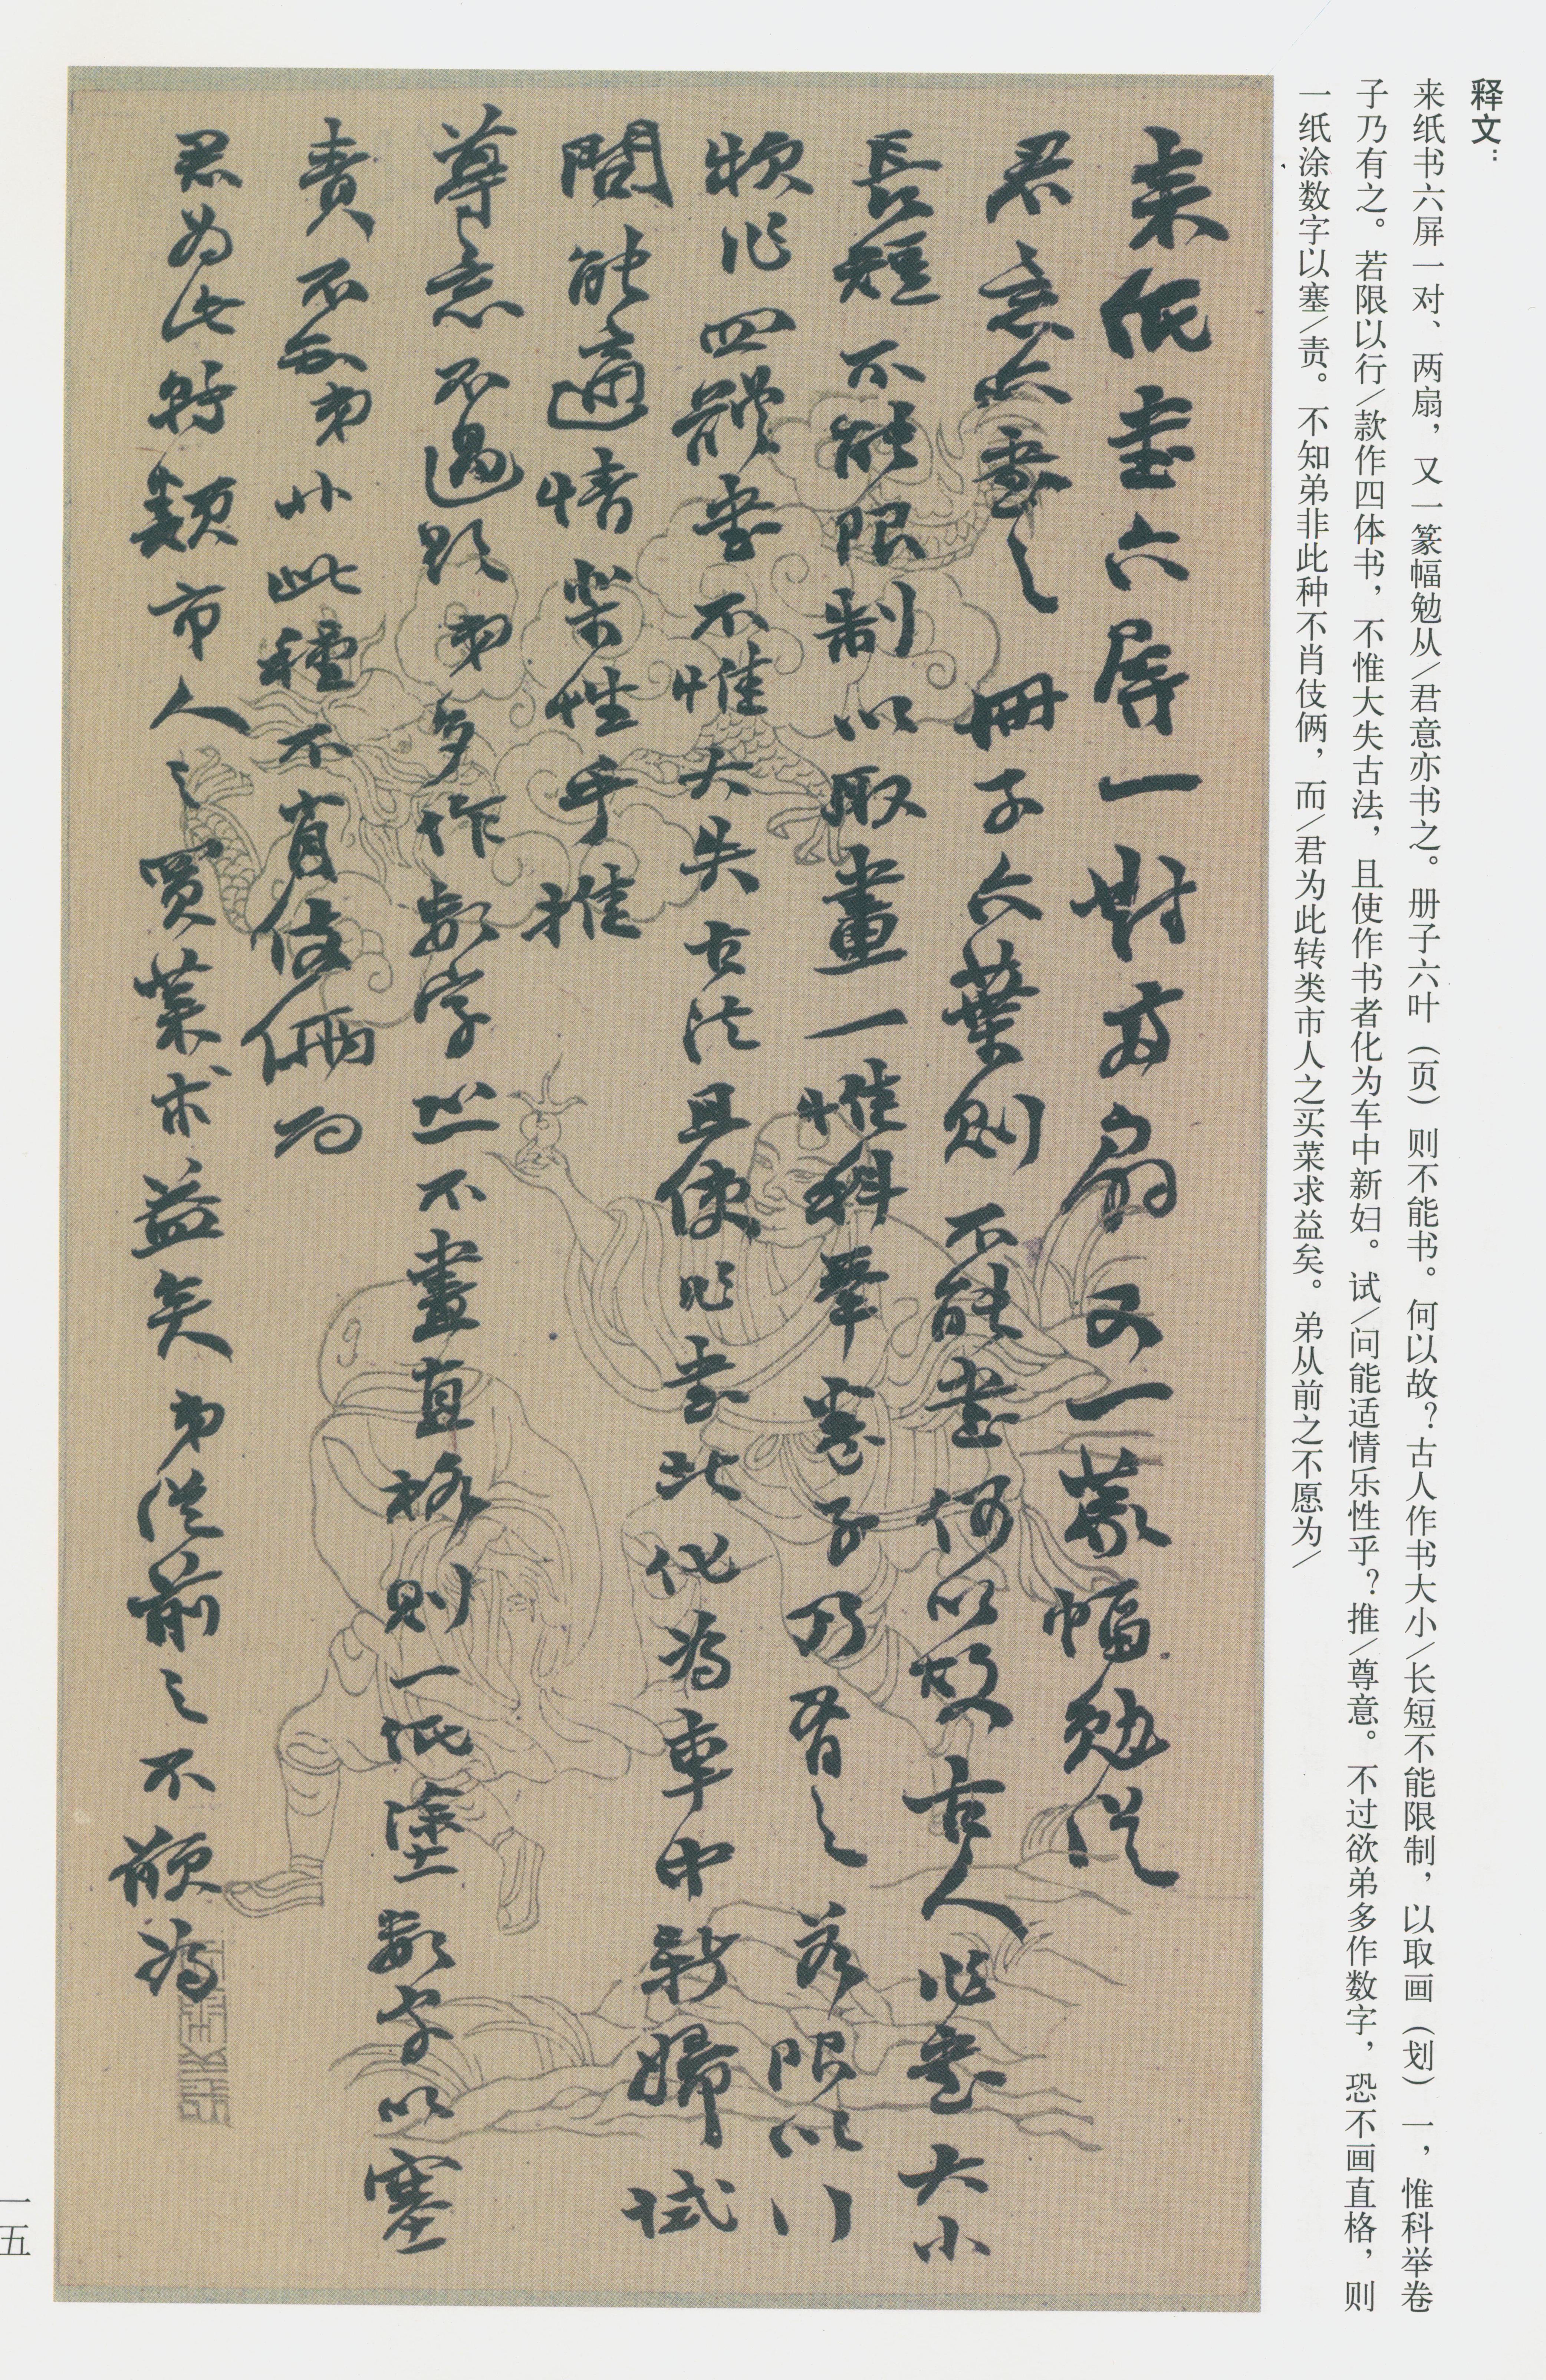 释文：
来纸书六屏一对、两扇，又一篆幅勉从/君意亦书之。册子六叶（页）则不能书。何以故？古人作书大小/长短不能限制，以取画（划）一，惟科举卷
子乃有之。若限以行/款作四体书，不惟大失古法，且使作书者化为车中新妇。试/问能适情乐性乎？推/尊意。不过欲弟多作数字，恐不画直格，则
一纸涂数字以塞/责。不知弟非此种不肖伎俩，而/君为此转类市人之买菜求益矣。弟从前之不愿为/
来紙書六屏一對兩扇又一篆幅勉從
君意亦書之冊子六葉則不能書何以故古人作書大小
長短不能限制以取畫一惟科舉卷子乃有之若限以行
款作四體書不惟大失古法且使作書者化為車中新婦試
問能適情樂性乎推
尊意不過欲弟多作數字恐不畫直格則一紙塗數字以塞
責不知弟非此種不肖伎倆而
君為此轉類市人之買菜求益矣弟從前之不願為
一五